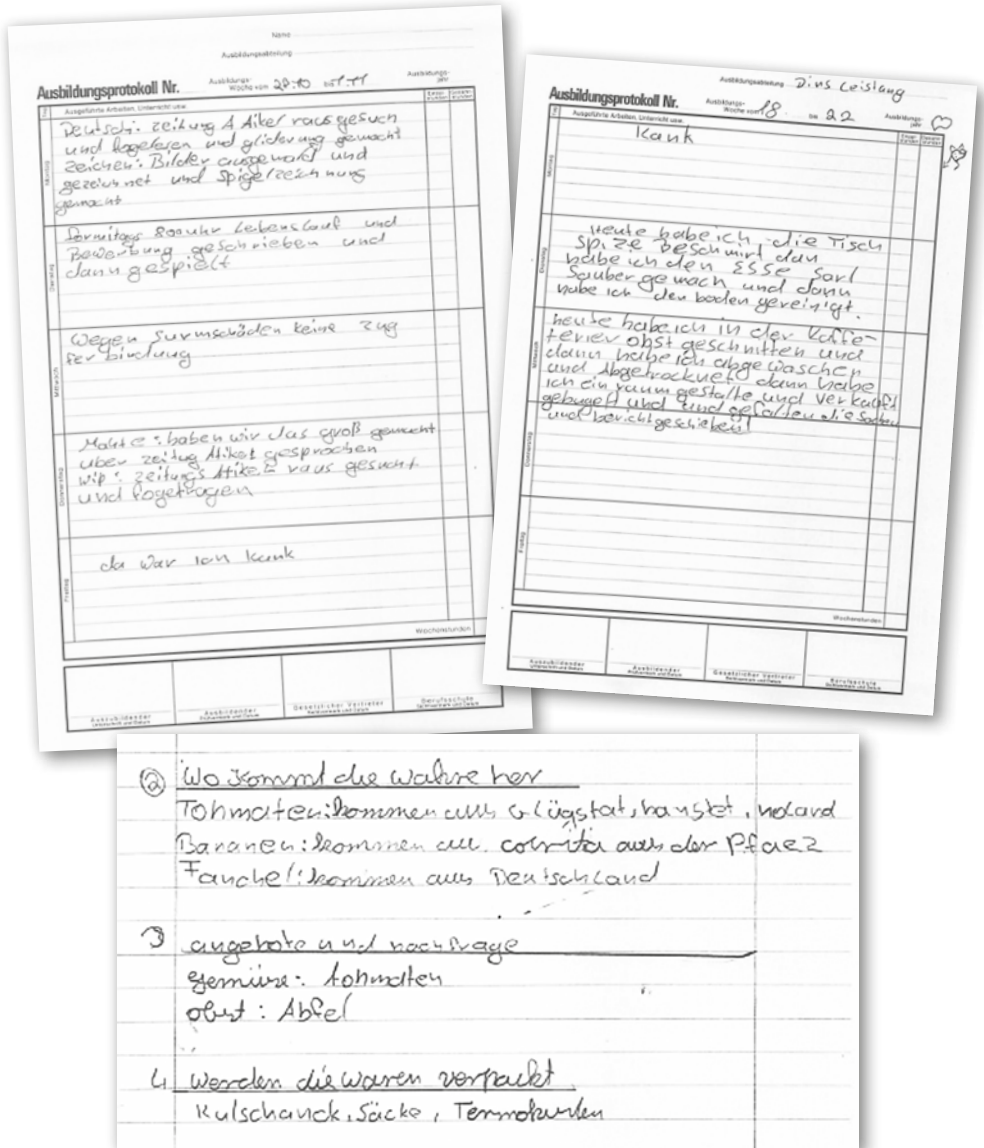 Name
Ausbildungsabteilung
Ausbildungsprotokoll Nr.
Ausbildungs-
Woche vom 28.10 bis 1.11
Ausbildungs-
jahr
Ausgeführte Arbeiten, Unterricht usw.
Montag
Deutsch: zeitung A Atikel rausgesuch
und fogelesen und gliderung gemacht
zeichen: Bilder ausgemahlt und
gezeichnet und Spigelzeichnung
gemacht
Dienstag
formitags 800 uhr Lebenslauf und
Bewerbung geschrieben und
dann gespielt
Mittwoch
Wegen Surmschäden keine zug
fer bindung
Donnerstag
Mahte: haben wir das groß gemacht
über zeitug Atikel gesprochen
wip: zeitungs Atikel raus gesucht
und fogetragen
Freitag
da war ich kank
Wochenstunden
Auszubildender
Unterschrift und Datum
Ausbildender
Gesetzlicher Vertreter
Berufsschule
Ausbildungsabteilung Dins Leistung
Ausbildungsprotokoll Nr.
Ausbildungs-
Woche vom 18. bis 22
Ausbildungs-
jahr
Ausgeführte Arbeiten, Unterricht usw.
Montag
Kank
Dienstag
Heute habe ich die Tisch
spize beschmirt dan
habe ich den Esse Sarl
Sauber gemach und dann
habe ich den boden gereinigt.
Mittwoch
heute habe ich in der Kaffe-
terier obst geschnitten und
dann habe ich abgewaschen
und Abgetrocknet dann habe
ich ein raum gestalte und verkauft
gebugelt und und gefalten die Sachen
und bericht geschieben!
Donnerstag
Freitag
Wochenstunden
Auszubildender
Unterschrift und Datum
Ausbildender
Gesetzlicher Vertreter
Berufsschule
2 Wo kommt die wahre her
Tohmaten: kommen aus Glügstat, hanstet, holard
Bananen: kommen aus costrita aus der Pfaez
Fanchel: kommen aus Deutschland
3 angebote und nachfrage
gemüse: tohmaten
obst: Abfel
4 werden die waren verpackt
Kulschanck, Säcke, Termokurten